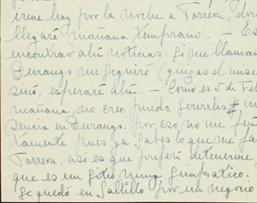 irme hoy por la noche a Torreón, don
llegaré mañana temprano. — Es
encontrar ahí noticias. Si me llaman
Durango me seguiré (quizás el mismo
sino, esperaré ahí. — Como es 5 de Feb
mañana, no creo pueda servirles mi
sencia en Durango. por eso, no me
tamente pues ya sabes lo que me fa
Torreón, así es que preferí detenerme
que es un sitio muy simpático.
Se quedó en Saltillo por un negocio